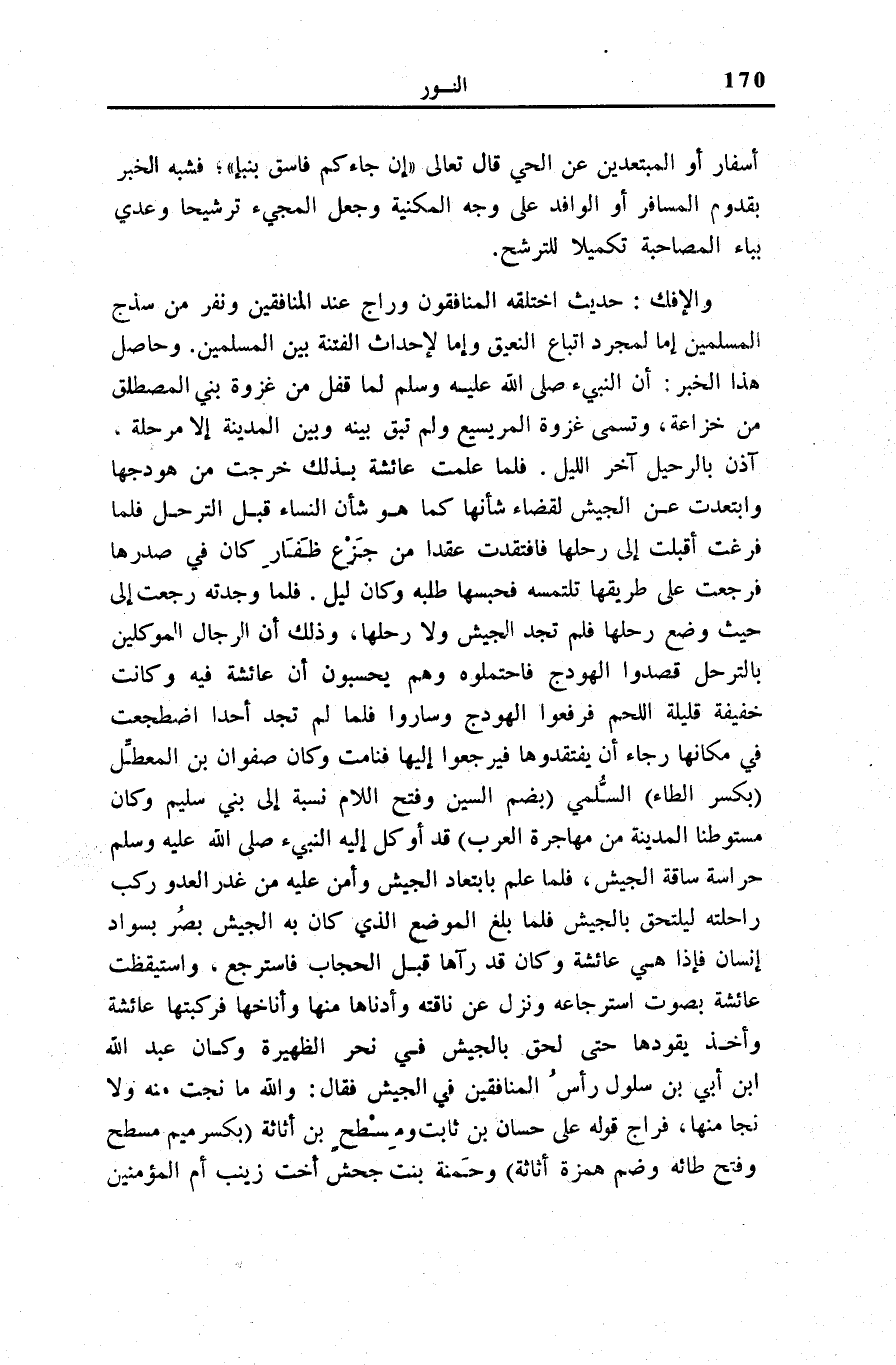 170
النــور
أسفار أو المبتعدين عن الحي قال تعالى «إن جاءكم فاسق بنبإ»؛ فشبه الخبر
بقدوم المسافر أو الوافد على وجه المكنية وجعل المجيء ترشيحا وعدي
بباء المصاحبة تكميلا للترشح.
والإفك : حديث اختلقه المنافقون وراج عند المنافقين ونفر من سذج
المسلمين إما لمجرد اتباع النعيق وإما لإحداث الفتنة بين المسلمين. وحاصل
هذا الخبر : أن النبيء صلى الله عليـه وسلم لما قفل من غزوة بني المصطلق
من خزاعة، وتسمى غزوة المريسيع ولم تبق بينه وبين المدينة إلا مرحلة ،
آذن بالرحيل آخر الليل . فلما علمت عائشة بـذلك خرجت من هودجها
وابتعدت عـن الجيش لقضاء شأنها كما هـو شأن النساء قبـل الترحـل فلما
فرغت أقبلت إلى رحلها فافتقدت عقدا من جَزْع ظَفَارِ كان في صدرها
فرجعت على طريقها تلتمسه فحبسها طلبه وكان ليل . فلما وجدته رجعت إلى
حيث وضع رحلها فلم تجد الجيش ولا رحلها، وذلك أن الرجال الموكلين
بالترحل قصدوا الهودج فاحتملوه وهم يحسبون أن عائشة فيه وكانت
خفيفة قليلة اللحم فرفعوا الهودج وساروا فلما لم تجد أحدا اضطجعت
في مكانها رجاء أن يفتقدوها فيرجعوا إليها فنامت وكان صفوان بن المعطِّل
(بكسر الطاء) السُّلمي (بضم السين وفتح اللام نسبة إلى بني سليم وكان
مستوطنا المدينة من مهاجرة العرب) قد أوكل إليه النبيء صلى الله عليه وسلم
حراسة ساقة الجيش، فلما علم بابتعاد الجيش وأمن عليه من غدر العدو ركب
راحلته ليلتحق بالجيش فلما بلغ الموضع الذي كان به الجيش بصُر بسواد
إنسان فإذا هـي عائشة وكان قد رآها قبـل الحجاب فاسترجع ، واستيقظت
عائشة بصوت استرجاعه ونزل عن ناقته وأدناها منها وأناخها فركبتها عائشة
وأخـذ يقودها حتى لحق بالجيش فـي نحر الظهيرة وكـان عبد الله
ابن أبي بن سلول رأسُ المنافقين في الجيش فقال: والله ما نجت منه ولا
نجا منها، فراج قوله على حسان بن ثابت ومِسْطَحِ بن أثاثة (بكسر ميم مسطح
وفتح طائه وضم همزة أثاثة) وحَمنة بنت جحش أخت زينب أم المؤمنين